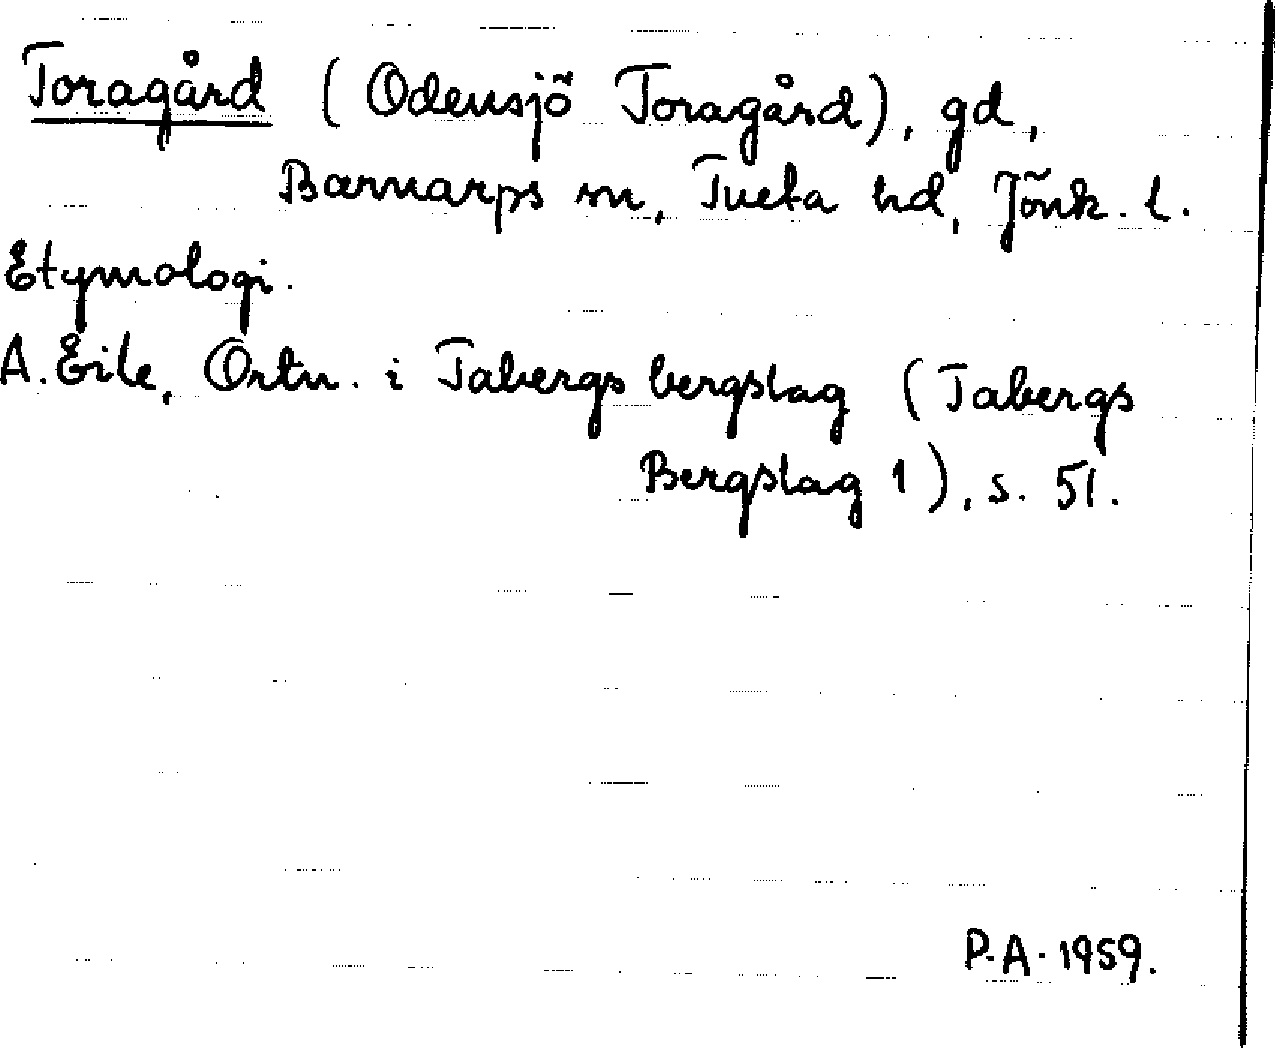 Toragård (Odensjö Toragård), gd,
Barnarps sn, Tveta hd, Jönk. l.
Etymologi.
A. Ejle, Ortn. i Tabergs bergslag (Tabergs
Bergslag 1), s. 51.
P.A. 1959.